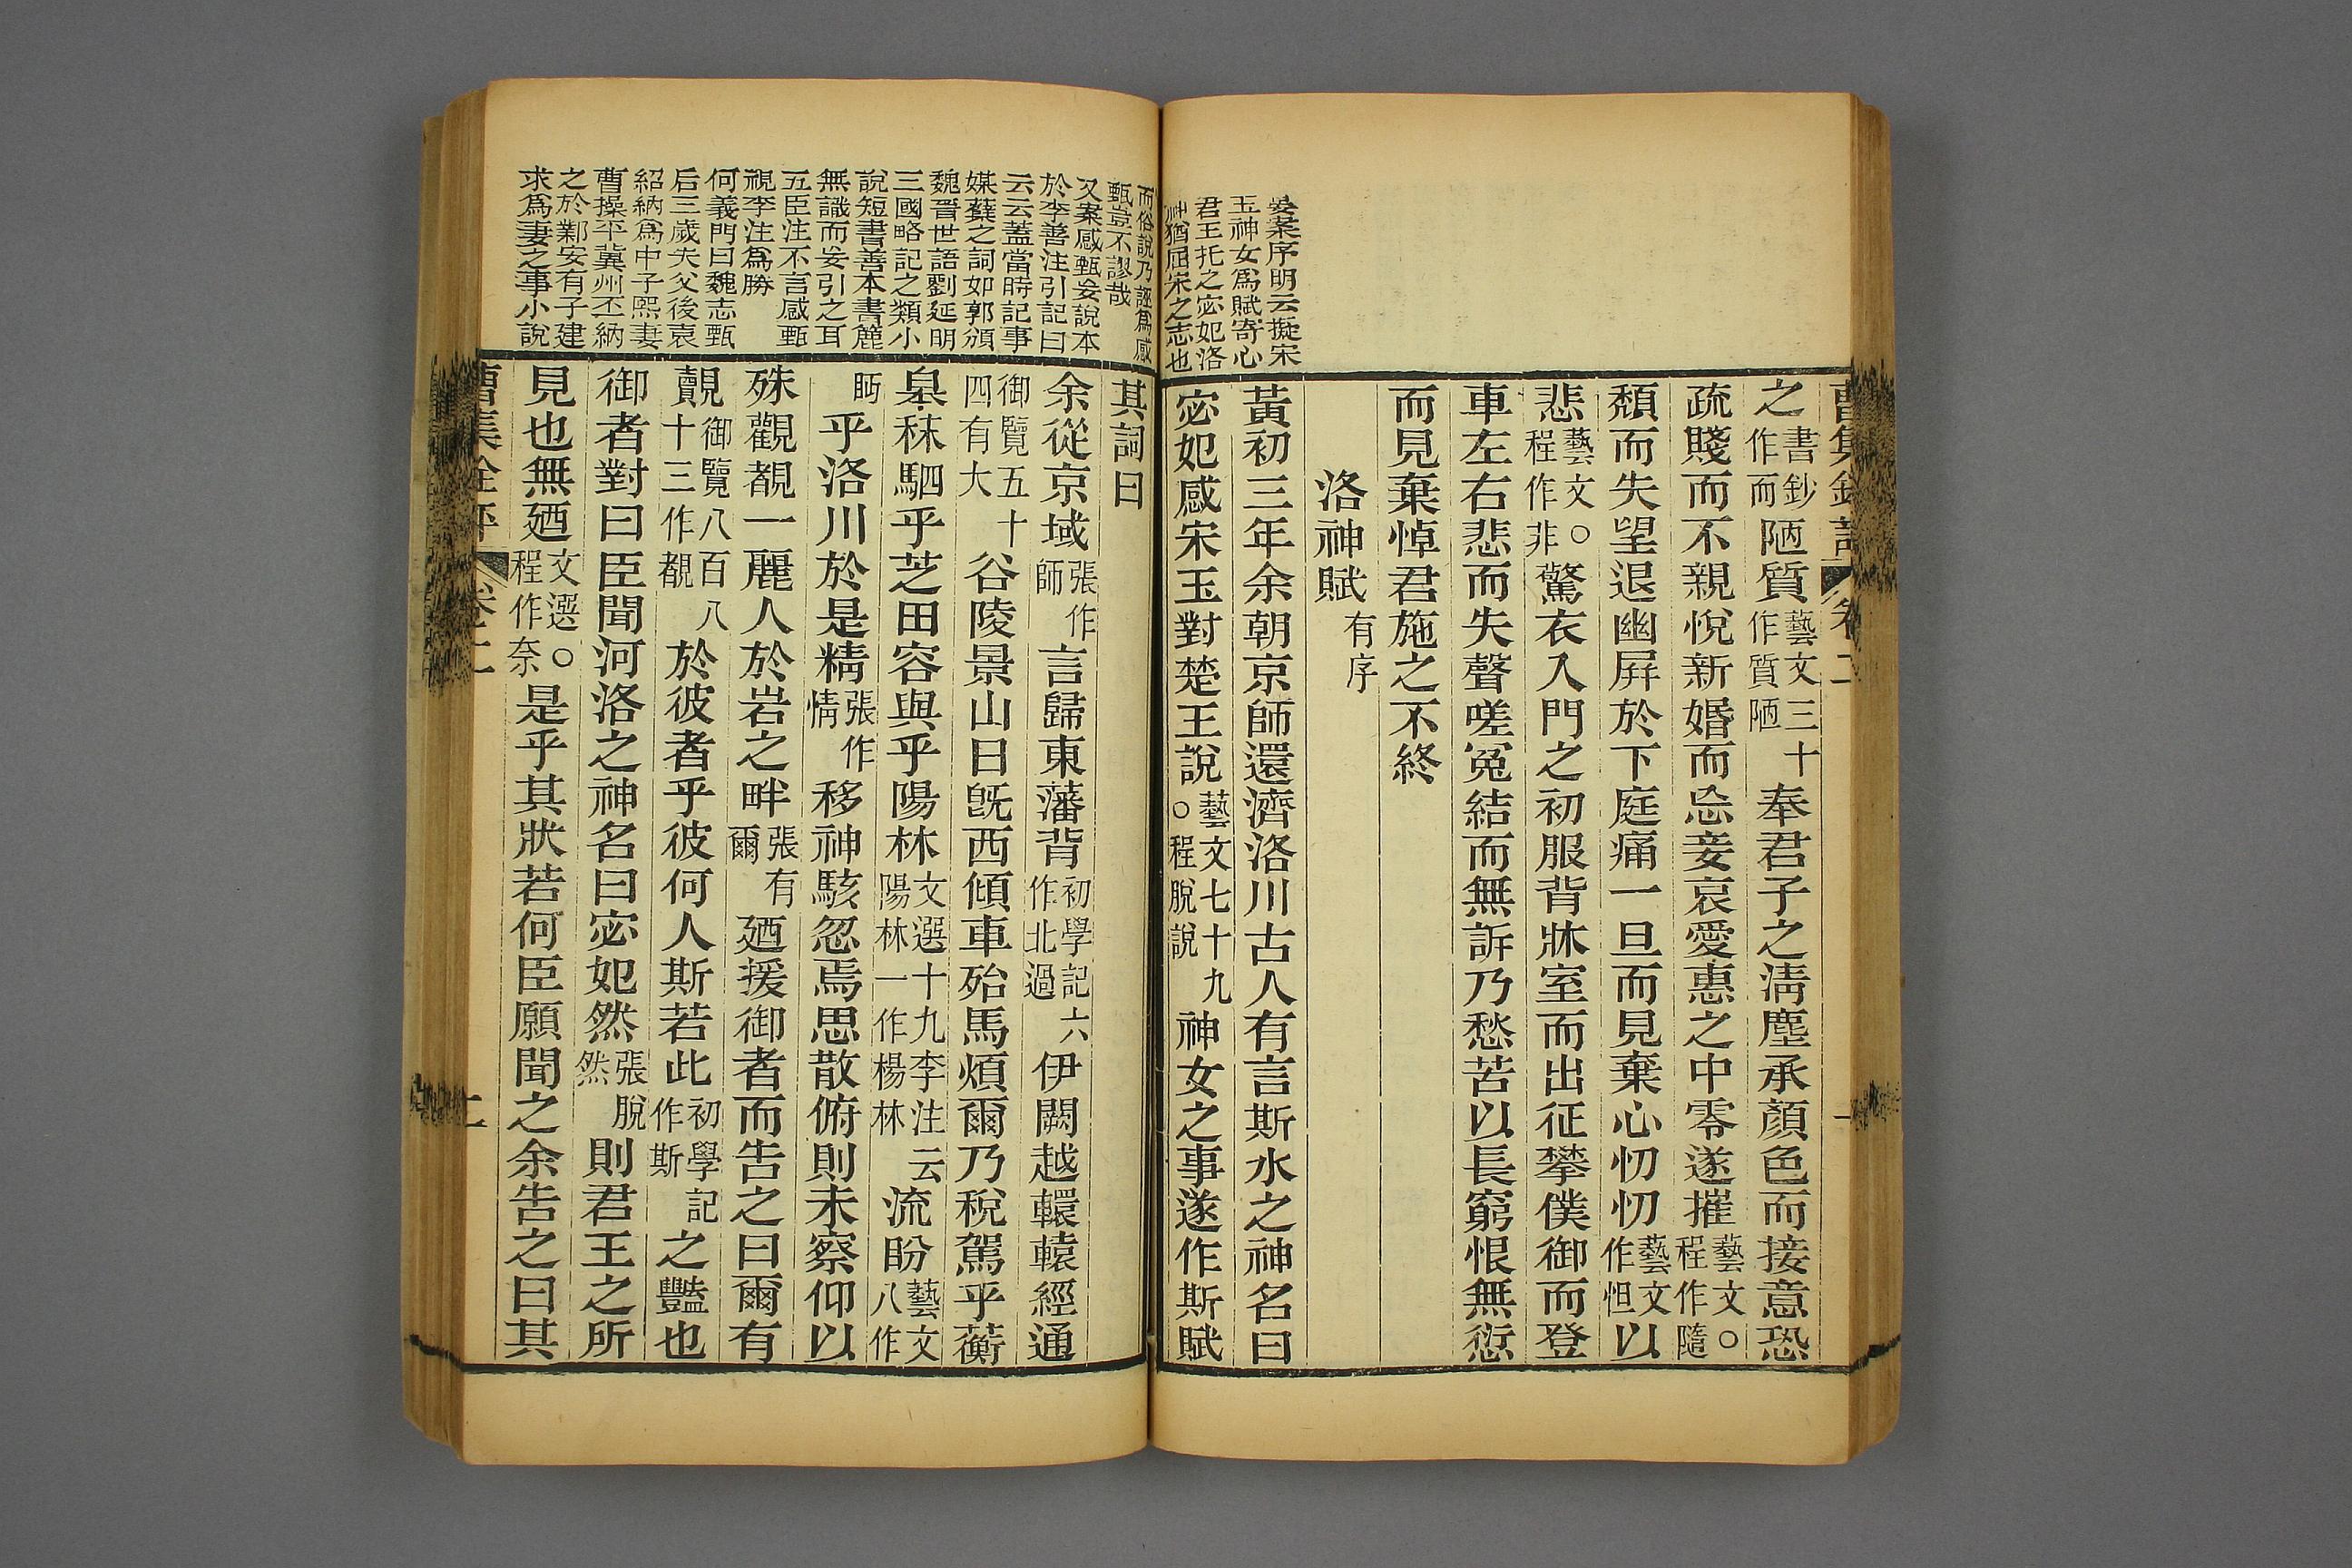 曹集銓評 卷二
晏案序明云擬宋
玉神女爲賦寄心
君王托之宓妃洛
神猶屈宋之志也
之書鈔作而陋質藝文三十作質陋奉君子之淸塵承顏色而接意恐
疏賤而不親悅新婚而忘妾哀愛惠之中零遂摧藝文○程作隨
頹而失望退幽屛於下庭痛一旦而見棄心忉忉藝文作怛以
悲藝文○程作非驚衣入門之初服背牀室而出征攀僕御而登
車左右悲而失聲嗟冤結而無訴乃愁苦以長窮恨無愆
而見棄悼君施之不終
洛神賦有序
黃初三年余朝京師還濟洛川古人有言斯水之神名曰
宓妃感宋玉對楚王說藝文七十九○程脫說神女之事遂作斯賦
而俗說乃誣爲感
甄豈不謬哉
又案感甄妄說本
於李善注引記曰
云云蓋當時記事
媒蘖之詞如郭頒
魏晉世語劉延明
三國略記之類小
說短書善本書簏
無識而妄引之耳
五臣注不言感甄
視李注爲勝
何義門曰魏志甄
后三歲失父後袁
紹納爲中子熙妻
曹操平冀州丕納
之於鄴安有子建
求爲妻之事小說
其詞曰
余從京域張作師言歸東藩背初學記六作北過伊闕越轘轅經通
御覽五十四有大谷陵景山日旣西傾車殆馬煩爾乃稅駕乎蘅
皋秣駟乎芝田容與乎陽林文選十九李注云陽林一作楊林流盼藝文八作
眄乎洛川於是精張作情移神駭忽焉思散俯則未察仰以
殊觀覩一麗人於岩之畔張有爾迺援御者而告之曰爾有
覿御覽八百八十三作覩於彼者乎彼何人斯若此初學記作斯之豔也
御者對曰臣聞河洛之神名曰宓妃然張脫然則君王之所
見也無迺文選○程作奈是乎其狀若何臣願聞之余告之曰其
曹集銓評 卷二